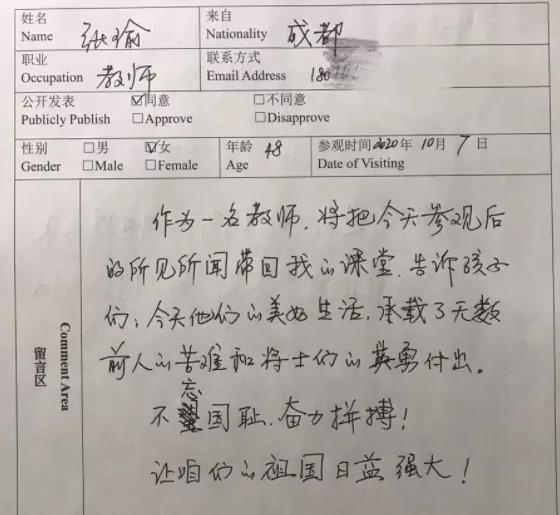 姓名 张瑜 来自 成都
Name Nationality
职业 教师 联系方式 180
Occupation Email Address
公开发表 ☑同意 □不同意
Publicly Publish □Approve □Disapprove
性别 □男 ☑女 年龄 48 参观时间 2020年 10月 7日
Gender □Male □Female Age Date of Visiting
留言区 Comment Area
作为一名教师，将把今天参观后
的所见所闻带回我的课堂，告诉孩子
们：今天他们的美好生活，承载了无数
前人的苦难和将士们的英勇付出。
不忘国耻、奋力拼搏！
让咱们的祖国日益强大！